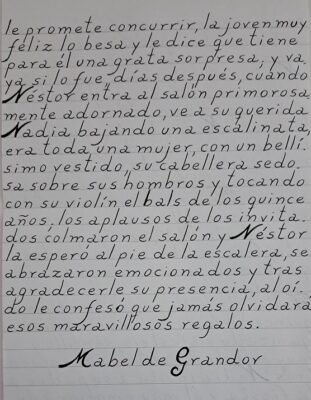 le promete concurrir, la joven muy
féliz lo besa y le dice que tiene
para él una grata sorpresa; y va
ya si lo fue, días después, cuándo
Néstor entra al salón primorosa
mente adornado, ve a su querida
Nadia, bajando una escalinata,
era toda una mujer, con un bellí.
simo vestido, su cabellera sedo.
sa sobre sus hombros y, tocando
con su violín el bals de los quince
años. los aplausos de los invita.
dos colmaron el salón y Néstor
la esperó al pie de la escalera, se
abrazaron emocionados y tras
agradecerle su presencia, al oí.
do le confesó que jamás olvidará
esos maravillosos regalos.
Mabel de Grandov